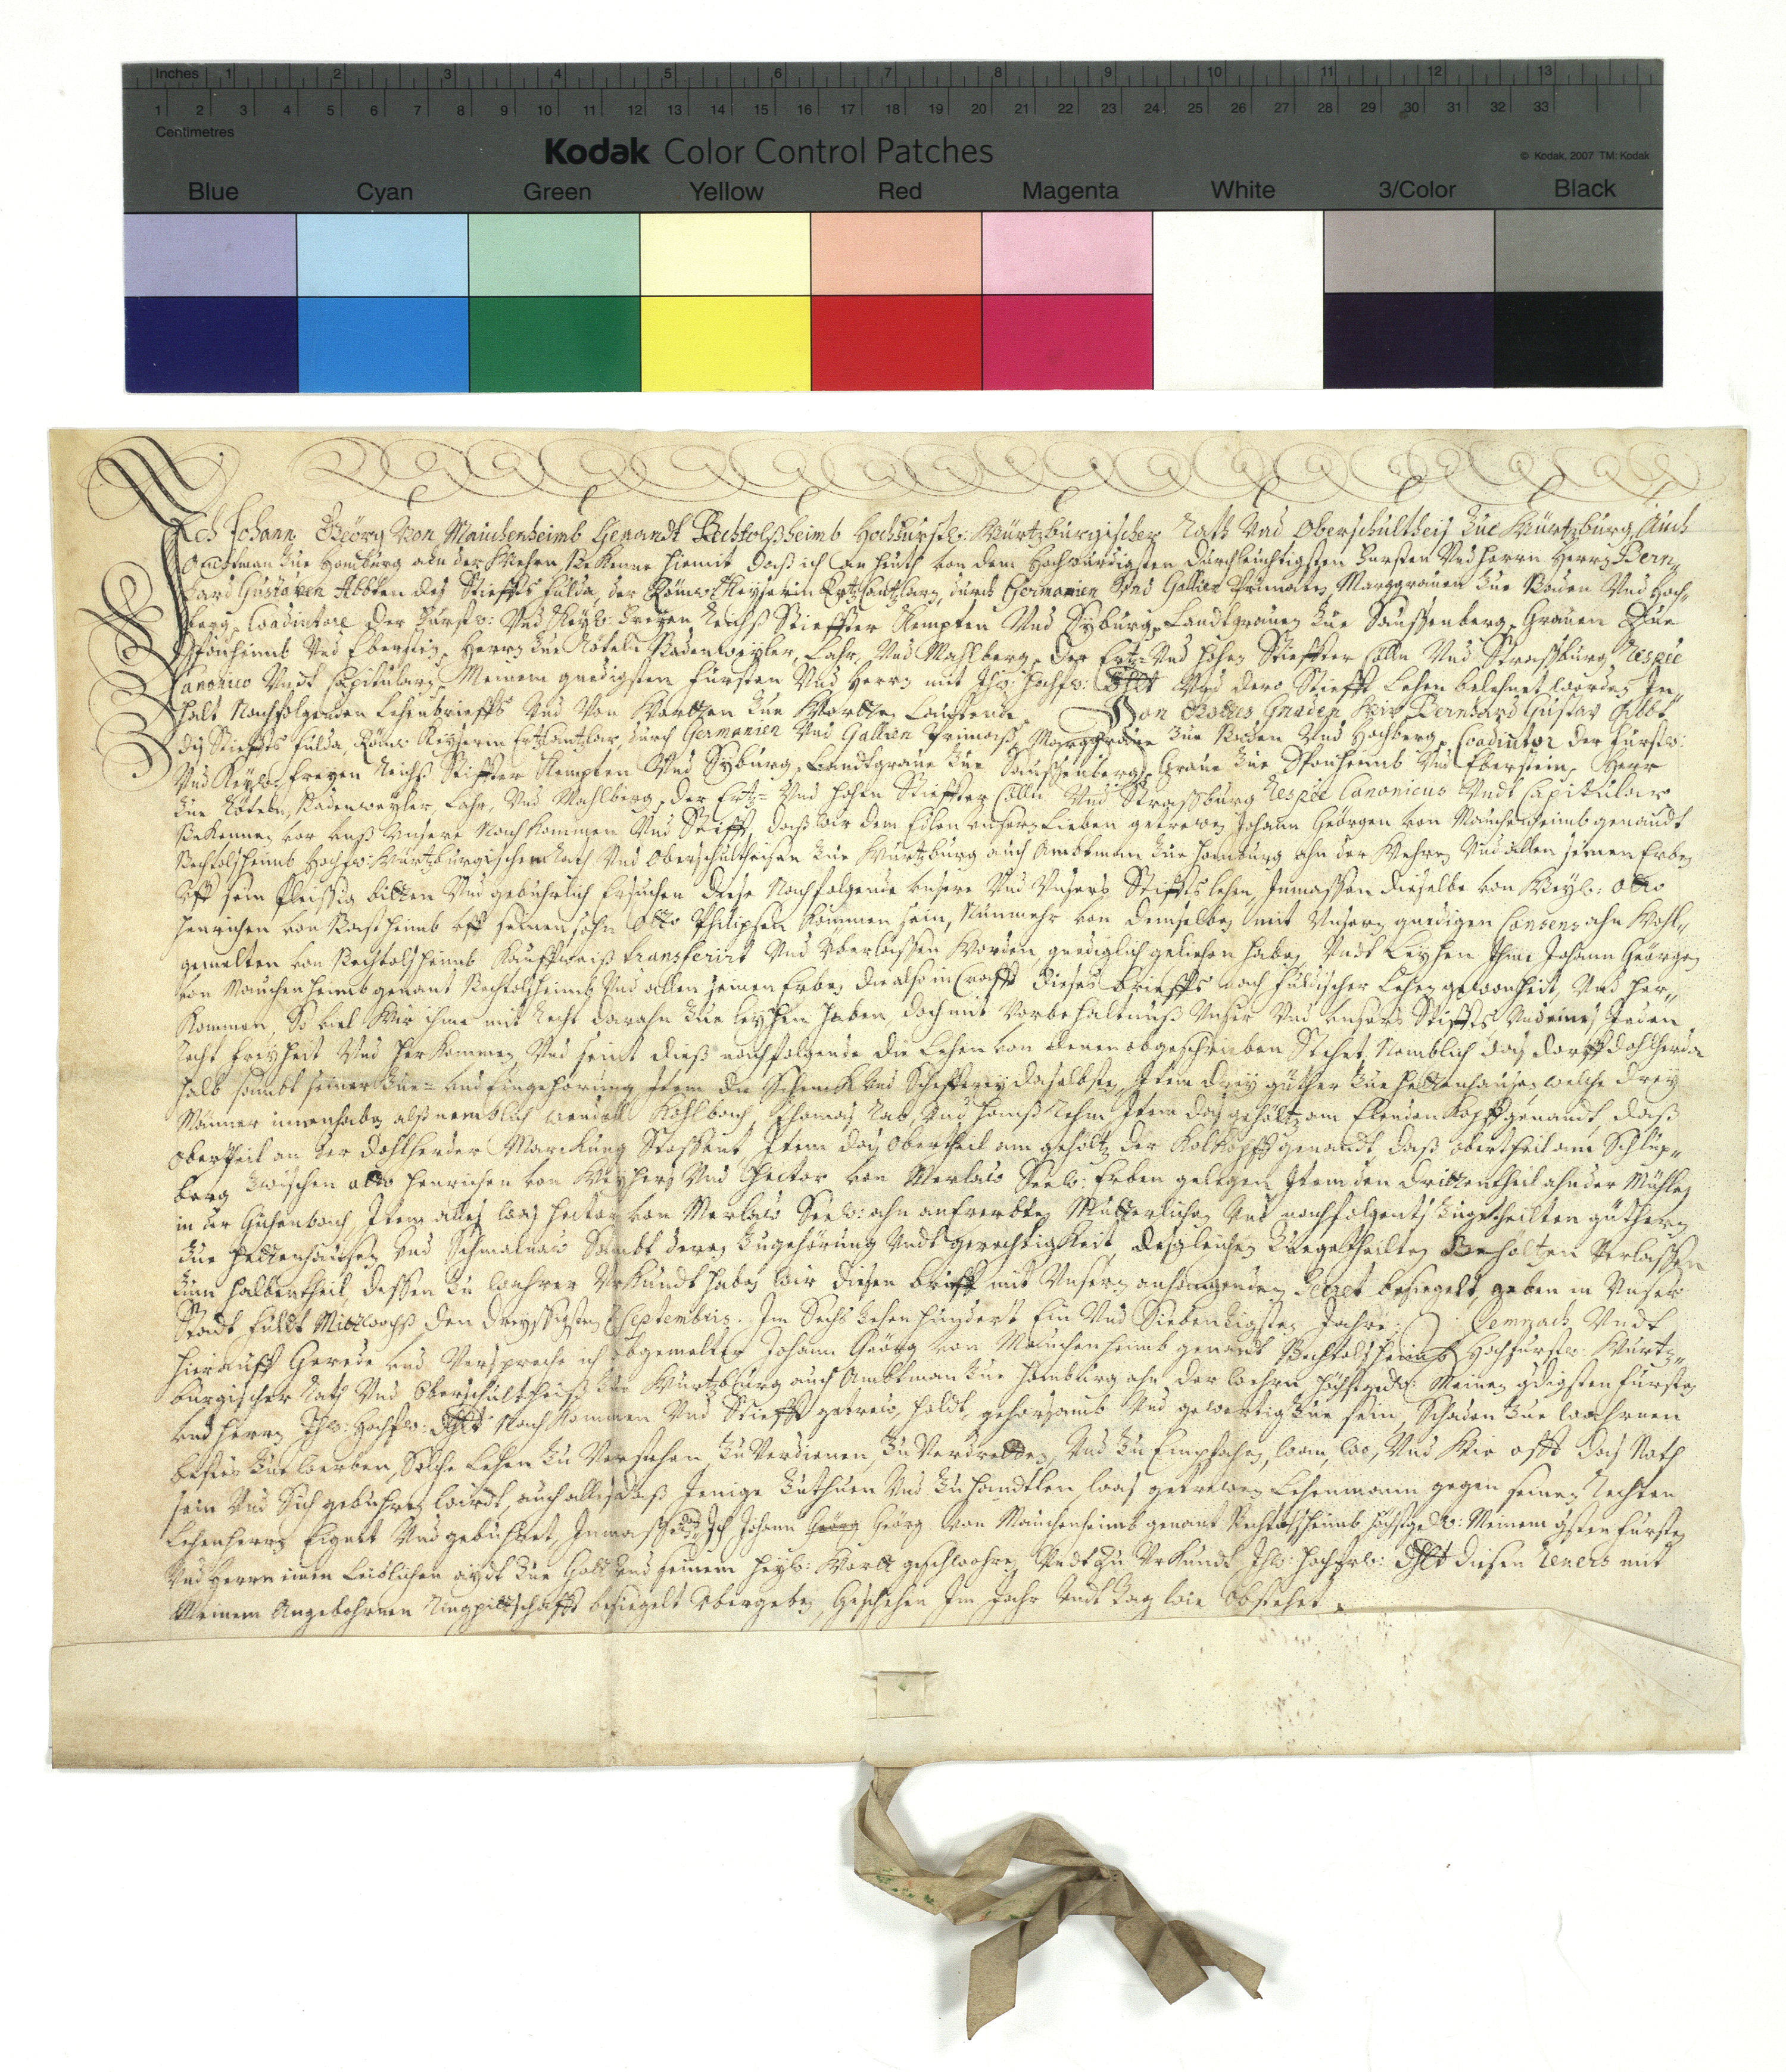 Inches 1 2 3 4 5 6 7 8 9 10 11 12 13
1 2 3 4 5 6 7 8 9 10 11 12 13 14 15 16 17 18 19 20 21 22 23 24 25 26 27 28 29 30 31 32 33
Centimetres
Kodak Color Control Patches
© Kodak, 2007 TM: Kodak
Blue Cyan Green Yellow Red Magenta White 3/Color Black
Ich Johann Geörg Von Mauchenheimb Genandt Bechtolßheimb Hochfürstl: Würtzburgischer Rath Vnd Oberschultheis zue Würtzburg, Auch
Ambtman zue Homburg ahn der Wehrn, Bekenne hiemit daß ich an heuth von dem Hochwürdigsten Durchleuchtigsten Fursten Vnd Herrn Herrn Bern,
hard Gustaven Abbten des Stieffts Fulda, der Röm: Keyserin Ertzcantzlarn, durch Germanien Vnd Gallien Primaten, Marggrauen zue Baden Vnd Hoch,
berg, Coadiutore der Fürstl: Vnd Keyl: Freyen Reichß Stieffter Kempten Vnd Syburg, Landtgrauen zue Saussenberg, Grauen Zue
Sponheimb Vnd Eberstein, Herrn zue Röteln Badenweyler, Lahr, Vnd Mahlberg, der Ertz= Vnd hohen Stieffter Cölln Vnd Straßburg Respec
Canonico Vndt Capitularn, Meinem gnedigsten Fürsten Vnd Herrn mit Ihr: hochf: Dhlt Vnd dero Stiefft Lehen belehnet worden In,
halt Nachfolgenden Lehenbrieffs Vnd Von Wortten zue Wortten Lautende. Von Gottes Gnaden Wir Bernhard Gustav Abbt
des Stieffts Fulda, Röm: Keyserin Ertzcantzlar, durch Germanien Vnd Gallien Primas, Marggraue zue Baden Vnd Hochberg, Coadiutor der Fürstl:
Vnd Keyl: freyen Reichß Stiffter Kempten Vnd Syburg, Landtgraue zue Saussenberg, Graue zue Sponheimb Vnd Eberstein, Herr
zue Röteln, Badenweyler, Lahr, Vnd Mahlberg, der Ertz= Vnd hohen Stieffter Cölln Vnd Straßburg Respec Canonicus Vndt Capitular
Bekennen vor Vnß Vnsere Nachkommen Vnd Stifft, daß wir dem Edlen vnsern Lieben getrewen Johann Geörgen von Mauchenheimb genandt
Bechtolsheimb Hochf: Würtzburgischen Rath Vnd Oberschultheisen zue Würtzburg auch Ambtman zue Homburg ahn der Wehrn Vnd allen seinen Erben
Vff sein fleissig bitten Vnd gebührlich Ersuchen diese Nachfolgende vnsere Vnd Vnsers Stiffts lehen, Inmassen dieselbe von Weyl: Otto
Henrichen von Bastheimb vff seinen sohn Otto Philipsen kommen sein, Nunmehr von demselben mit Vnsern gnedigen Consens ahn Wohl,
gemelten von Bechtolsheimb Kauffweiß transferirt Vnd Vberlassen Worden, gnediglich geliehen haben, Vndt Leyhen Ihme Johann Geörgen
von Mauchenheimb genant Bechtolsheimb Vnd allen seinen Erben die also in Crafft dieses brieffs nach fuldischer Lehen gewonheit Vnd Her,
kommen, So viel Wir ihme mit Recht daran zue leyhen haben, doch mit Vorbehaltnuß Vnser Vnd vnsers Stiffts Vnd eines Jeden
Recht freyheit Vnd Herkommen, Vnd seint dieß nachfolgende die Lehen von denen obgeschrieben Stehet, Nemblich das dorff dahlherda
halb sambt seiner Zue= vnd Eingehörung, Item die Schenck Vnd Schefferey daselbsten, Item drey güther zue Hettenhausen welche drey
Männer innenhaben alß nemblich Wendell Kohlbach, Thomas Rab, Vnd hanß Rehm, Item das gehöltz am Elenden Kopff genandt, daß
Obertheil an der dahlherder Marckung Stossent, Item das Obertheil am geholtz der Kohlkopff genandt, daß obertheil am Schlup,
berg zwischen Otto Henrichen von Weyhers Vnd Hector von Merlaw Seel: Erben gelegen, Item den drittentheil ahn der Mühlen
in der Gichenbach, Item alles was Hector von Merlaw Seel: ahn anererbten Mütterlichen Vnd nachfolgents zugetheilten güthern
zue Hettenhausen Vnd Schmalnaw Sambt deren zugehörung Vndt gerechtigkeit, desgleichen zuegetheilten Gehöltzen Verlassen
zum halbentheil, dessen zu wahrer Vrkundt haben wir diesen brieff mit Vnsern anhangenden Secret besiegelt, geben in Vnser
Stadt Fuldt Mittwochß den dreyssigsten Septembris. Im Sechszehenhundert Ein Vnd Siebenzigsten Jahre. Demnach Vndt
hierauff Gerede vnd Verspreche ich obgemelter Johann Geörg von Mauchenheimb genant Bechtolsheimb Hochfürstl: Würtz,
burgischer Rath Vnd Oberschultheiß zue Würtzburg auch Ambtman zue Homburg ahn der Wehrn höchstged: Meinen gdigsten Fürsten
vnd Herrn Ihr: Hochf: Dhlt Nachkommen Vnd Stiefft getrew, holdt, gehorsamb Vnd gewertig zue sein, Schaden zue wahrnen
bestes zue werben, Solche Lehen zu Verstehen, zu Verdienen, zu Vertretten, Vnd zu Empfahen, wan, wo, Vnd Wie offt das Noth
sein Vnd Sich gebühren wirdt, auch alles daß Jenige zuthuen Vnd zu handtlen, was getrewen Lehenmann gegen seinen Rechten
Lehenherrn Eignet Vnd gebühret, Inmassen dan Ich Johann Geörg Geörg von Mauchenheimb genant Bechtolsheimb höchstged: Meinem gsten Fürsten
Vnd Herrn einen Leiblichen aydt zue Gott Vnd seinem heyl: Wortt geschwohren, Vndt zu Vrkundt Ihr: hochfrl: Dhlt diesen Revers mit
Meinem Angebohrnen Ringpittschafft besiegelt Vbergeben, Geschehen Im Jahr Vndt Tag wie Obstehet.